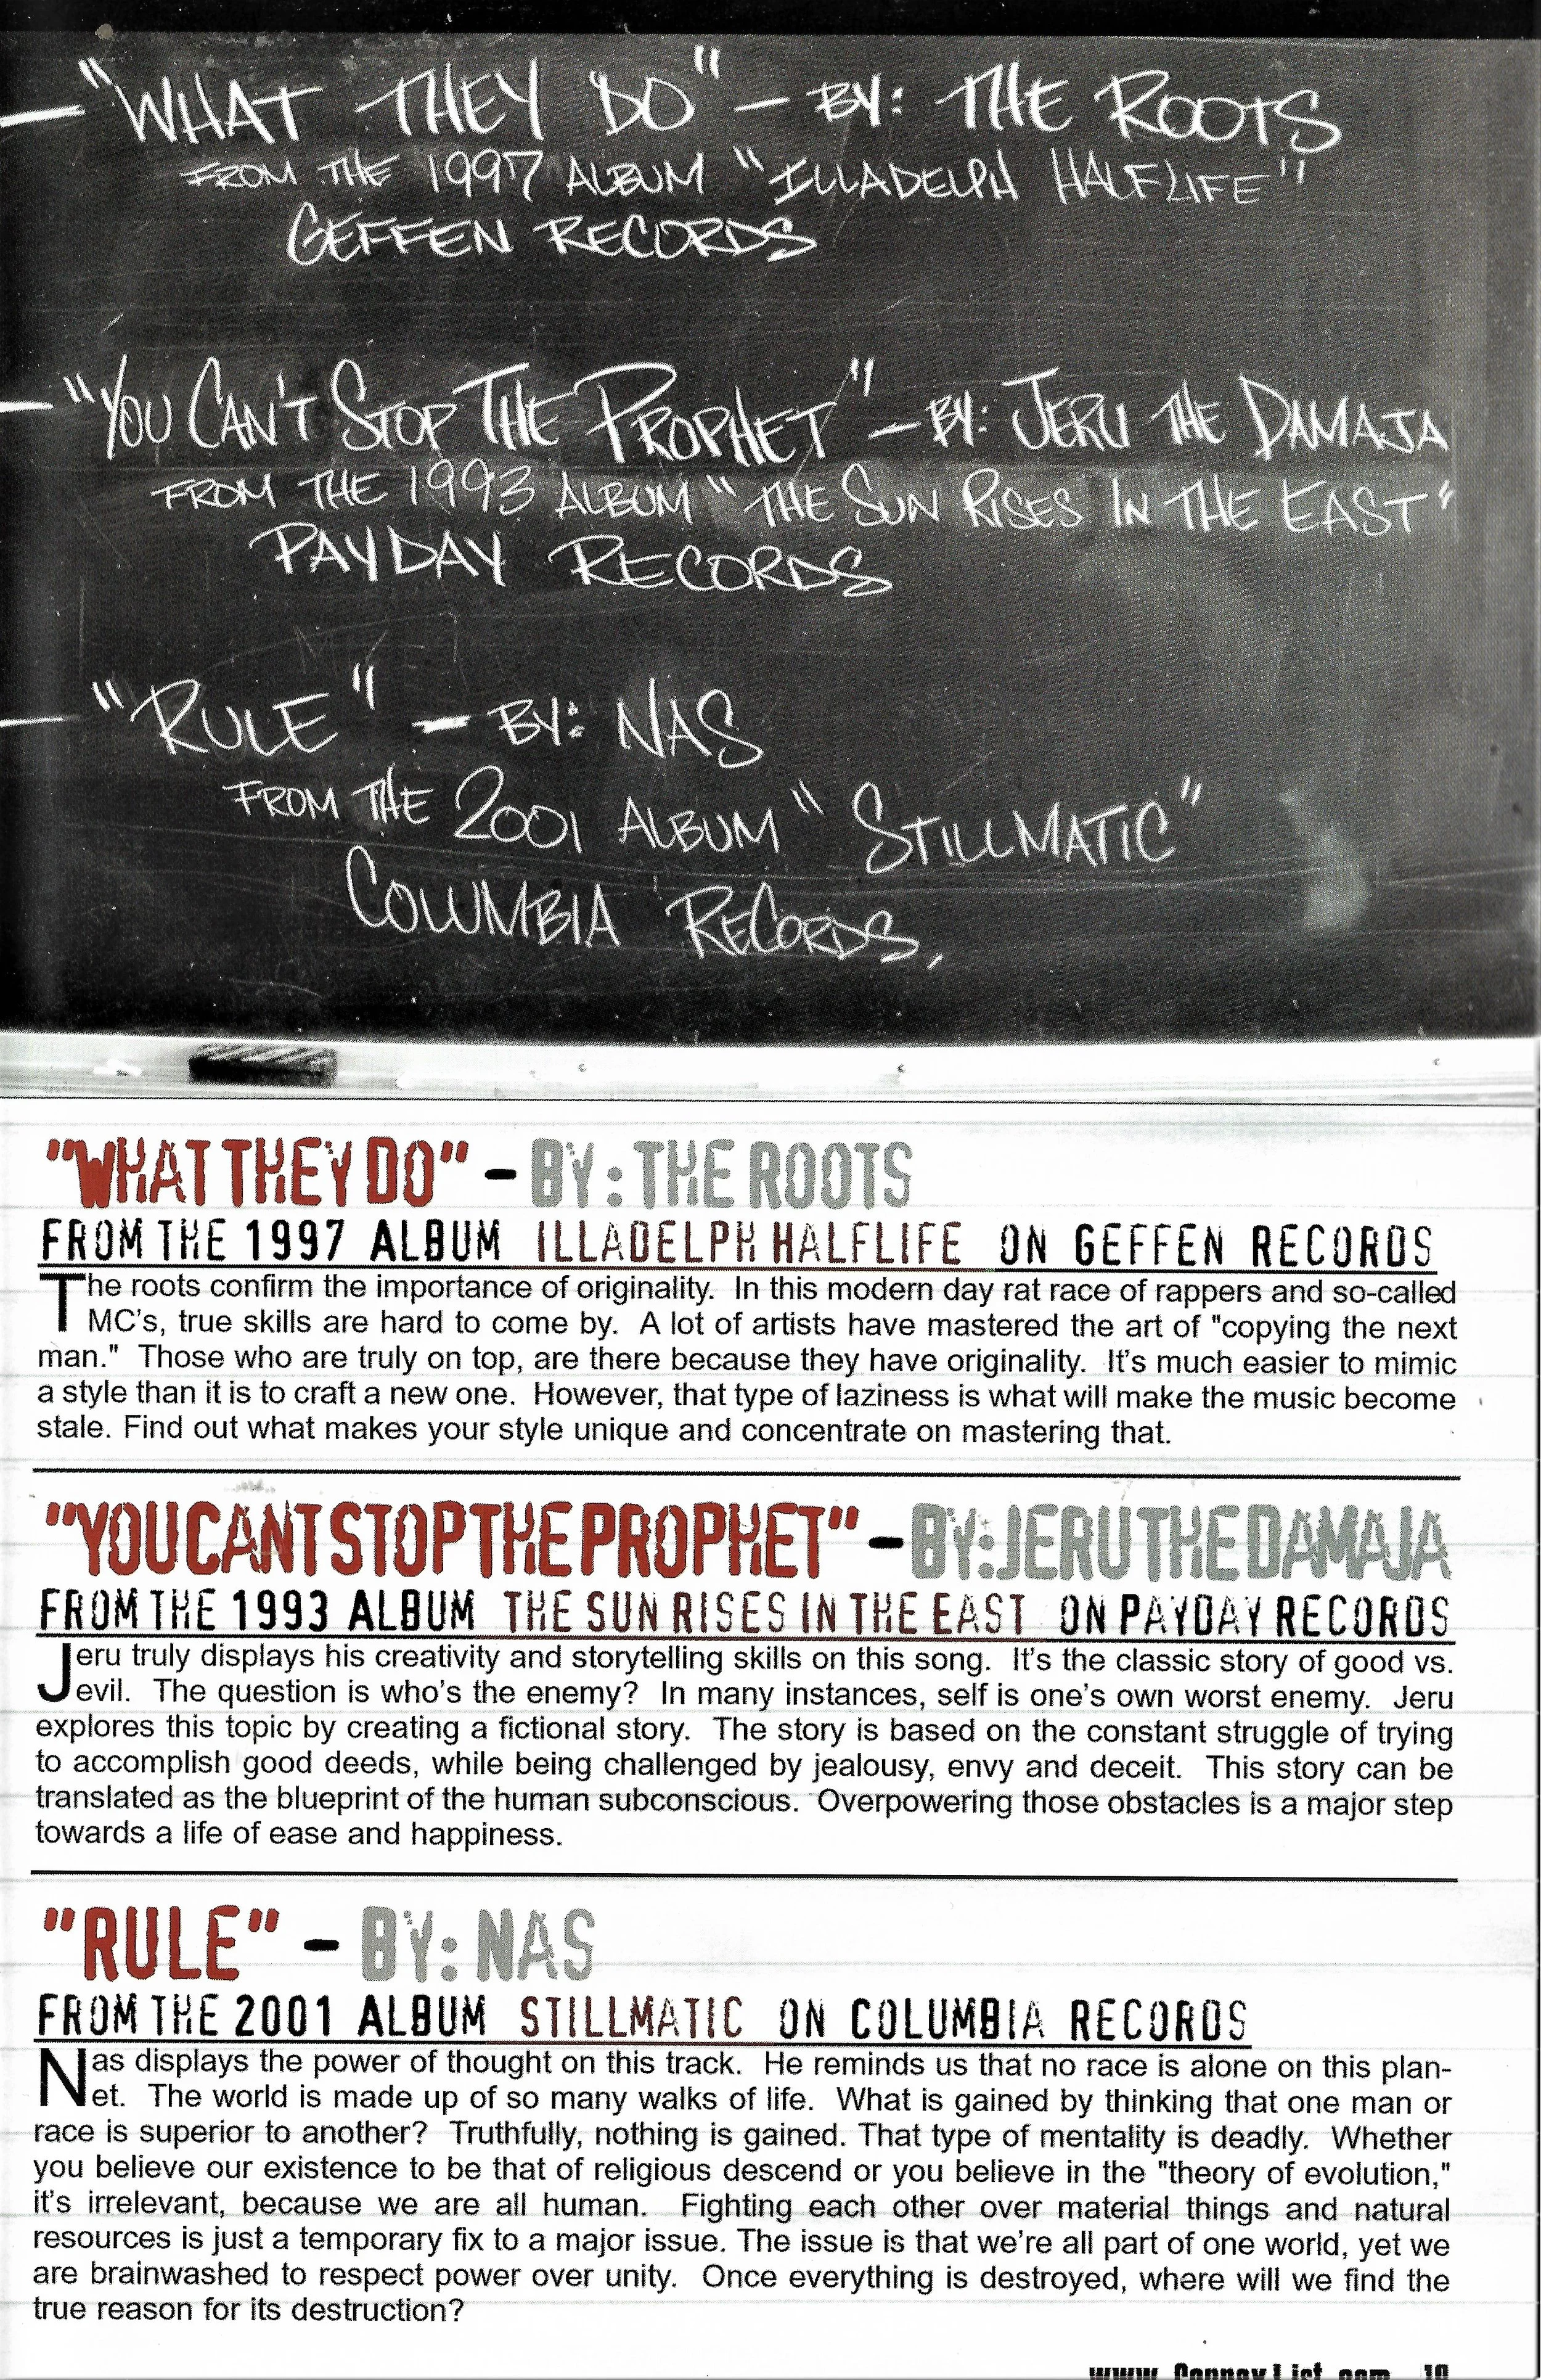 — "WHAT THEY DO" — BY: THE ROOTS
FROM THE 1997 ALBUM "ILLADELPH HALFLIFE"
GEFFEN RECORDS
— "YOU CAN'T STOP THE PROPHET" — BY: JERU THE DAMAJA
FROM THE 1993 ALBUM "THE SUN RISES IN THE EAST"
PAYDAY RECORDS
— "RULE" — BY: NAS
FROM THE 2001 ALBUM "STILLMATIC"
COLUMBIA RECORDS,
"WHAT THEY DO" - BY: THE ROOTS
FROM THE 1997 ALBUM ILLADELPH HALFLIFE ON GEFFEN RECORDS
The roots confirm the importance of originality. In this modern day rat race of rappers and so-called
MC's, true skills are hard to come by. A lot of artists have mastered the art of "copying the next
man." Those who are truly on top, are there because they have originality. It's much easier to mimic
a style than it is to craft a new one. However, that type of laziness is what will make the music become
stale. Find out what makes your style unique and concentrate on mastering that.
"YOU CANT STOP THE PROPHET" - BY: JERU THE DAMAJA
FROM THE 1993 ALBUM THE SUN RISES IN THE EAST ON PAYDAY RECORDS
Jeru truly displays his creativity and storytelling skills on this song. It's the classic story of good vs.
evil. The question is who's the enemy? In many instances, self is one's own worst enemy. Jeru
explores this topic by creating a fictional story. The story is based on the constant struggle of trying
to accomplish good deeds, while being challenged by jealousy, envy and deceit. This story can be
translated as the blueprint of the human subconscious. Overpowering those obstacles is a major step
towards a life of ease and happiness.
"RULE" - BY: NAS
FROM THE 2001 ALBUM STILLMATIC ON COLUMBIA RECORDS
Nas displays the power of thought on this track. He reminds us that no race is alone on this plan-
et. The world is made up of so many walks of life. What is gained by thinking that one man or
race is superior to another? Truthfully, nothing is gained. That type of mentality is deadly. Whether
you believe our existence to be that of religious descend or you believe in the "theory of evolution,"
it's irrelevant, because we are all human. Fighting each other over material things and natural
resources is just a temporary fix to a major issue. The issue is that we're all part of one world, yet we
are brainwashed to respect power over unity. Once everything is destroyed, where will we find the
true reason for its destruction?
www.